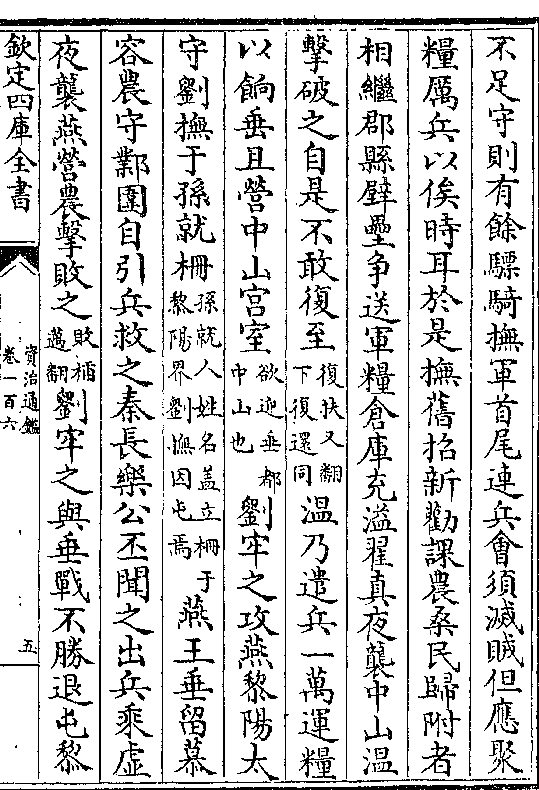 不足守則有餘驃騎撫軍首尾連兵㑹須滅賊但應聚
糧厲兵以俟時耳於是撫舊招新勸課農桑民歸附者
相繼郡縣壁壘爭送軍糧倉庫充溢翟真夜襲中山温
擊破之自是不敢復至復扶又翻下復還同温乃遣兵一萬運糧
以餉垂且營中山宫室欲迎垂都中山也劉牢之攻燕黎陽太
守劉撫于孫就柵孫就人姓名蓋立柵于黎陽界劉撫因屯焉燕王垂留慕
容農守鄴圍自引兵救之秦長樂公丕聞之出兵乘虛
夜襲燕營農擊敗之敗補邁翻劉牢之與垂戰不勝退屯黎
欽定四庫全書
資治通鑑
卷一百六
五